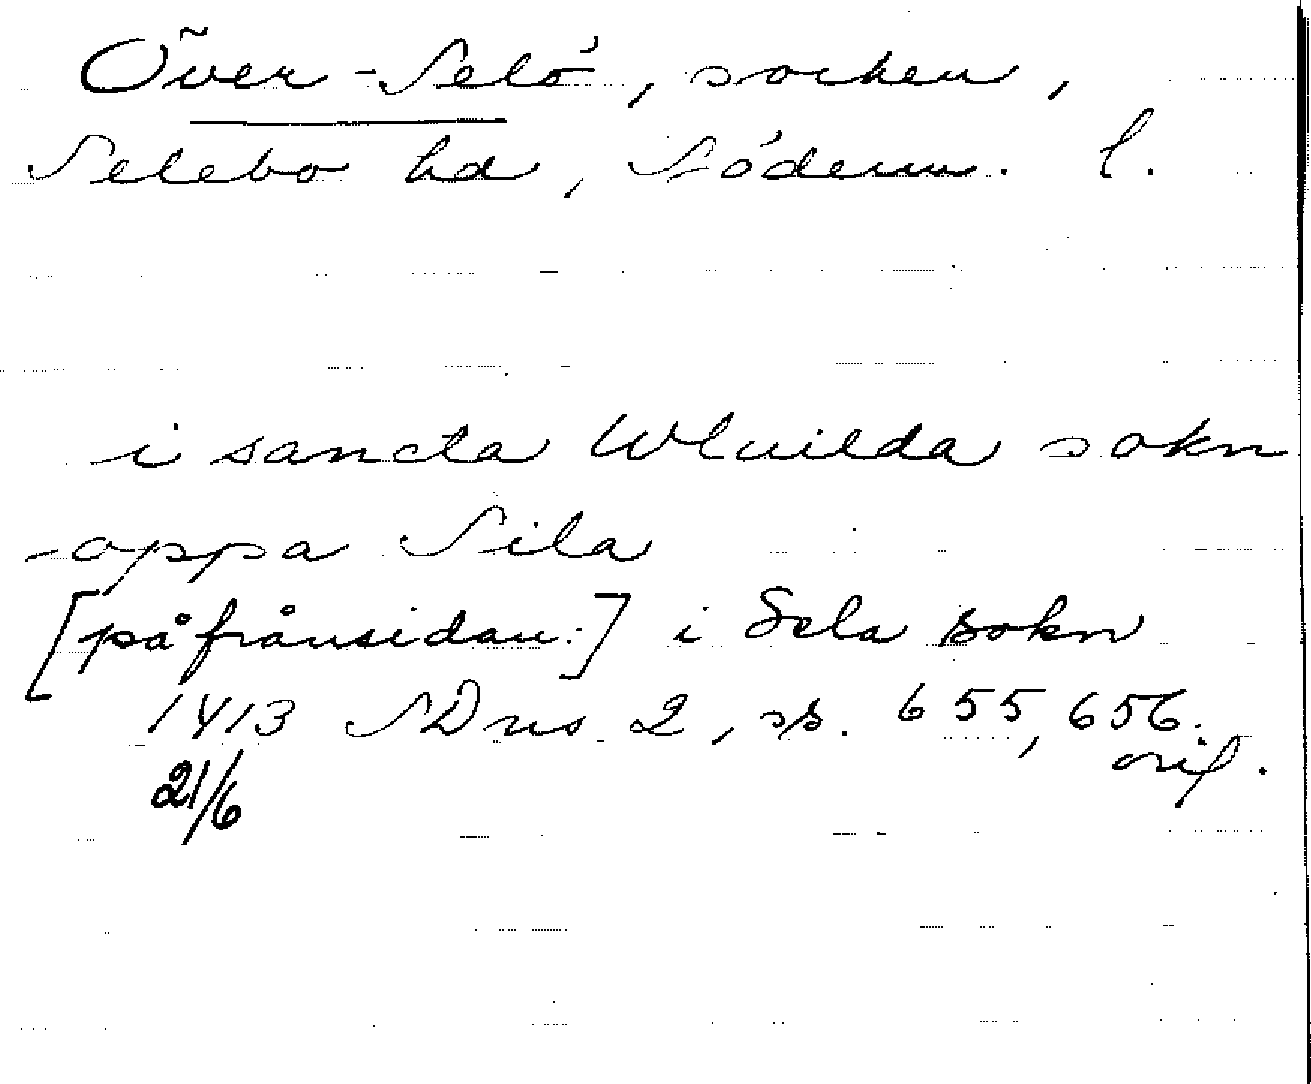 Över-Selö, socken,
Selebo hd, Söderm. l.
i sancta Wluilda sokn
oppa Sila
[på frånsidan:] i Sela sokn
1413 SDns 2, ss. 655, 656.
orig.
21/6